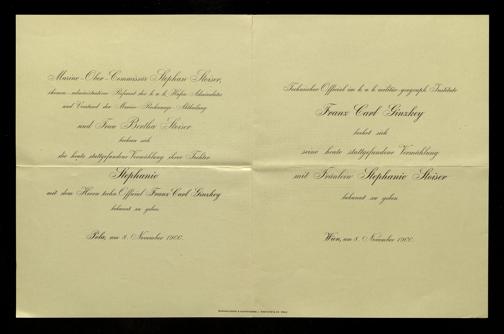 Marine-Ober-Commissär Stephan Stoiser,
ökonom.-administrativer Referent des k. u. k. Hafen-Admiralates
und Vorstand der Marine-Rechnungs-Abtheilung
und Frau Bertha Stoiser
beehren sich
die heute stattgefundene Vermählung ihrer Tochter
Stephanie
mit dem Herrn techn. Official Franz Carl Ginzkey
bekannt zu geben.
Pola, am 8. November 1900.
Technischer Official im k. u. k. militär-geograph. Institute
Franz Carl Ginzkey
beehrt sich
seine heute stattgefundene Vermählung
mit Fräulein Stephanie Stoiser
bekannt zu geben.
Wien, am 8. November 1900.